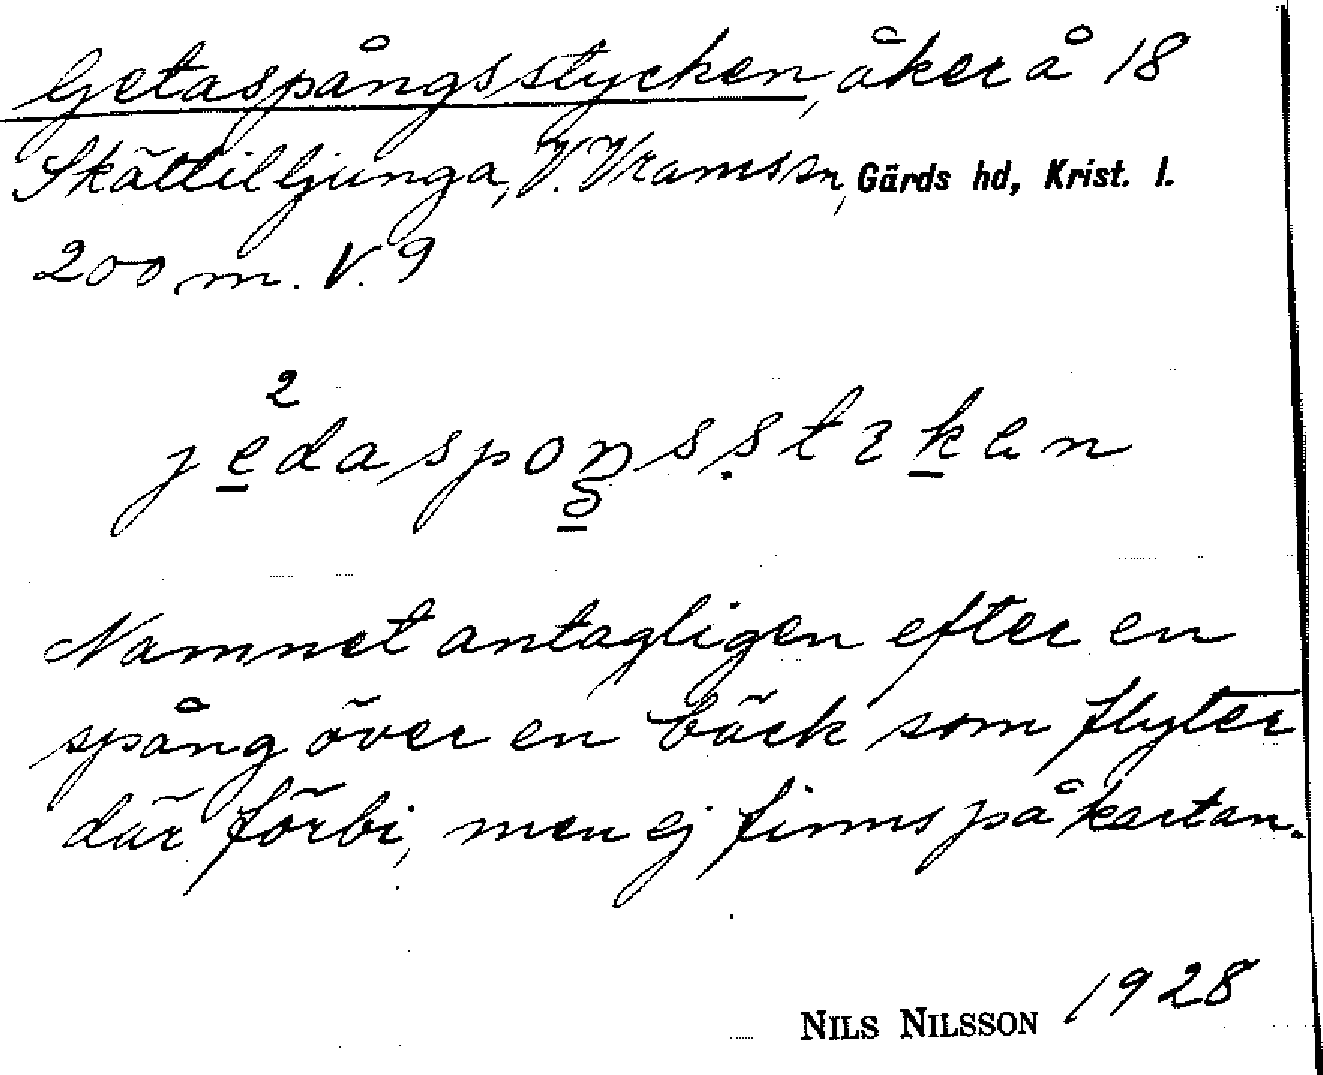 Getaspångsstycken, åker å 18
Skättilljunga, V. Vrams sn, Gärds hd, Krist. l.
200 m. V. 9
2
jedasponsstɿken
Namnet antagligen efter en
spång över en bäck som flyter
där förbi, men ej finns på kartan.
NILS NILSSON 1928